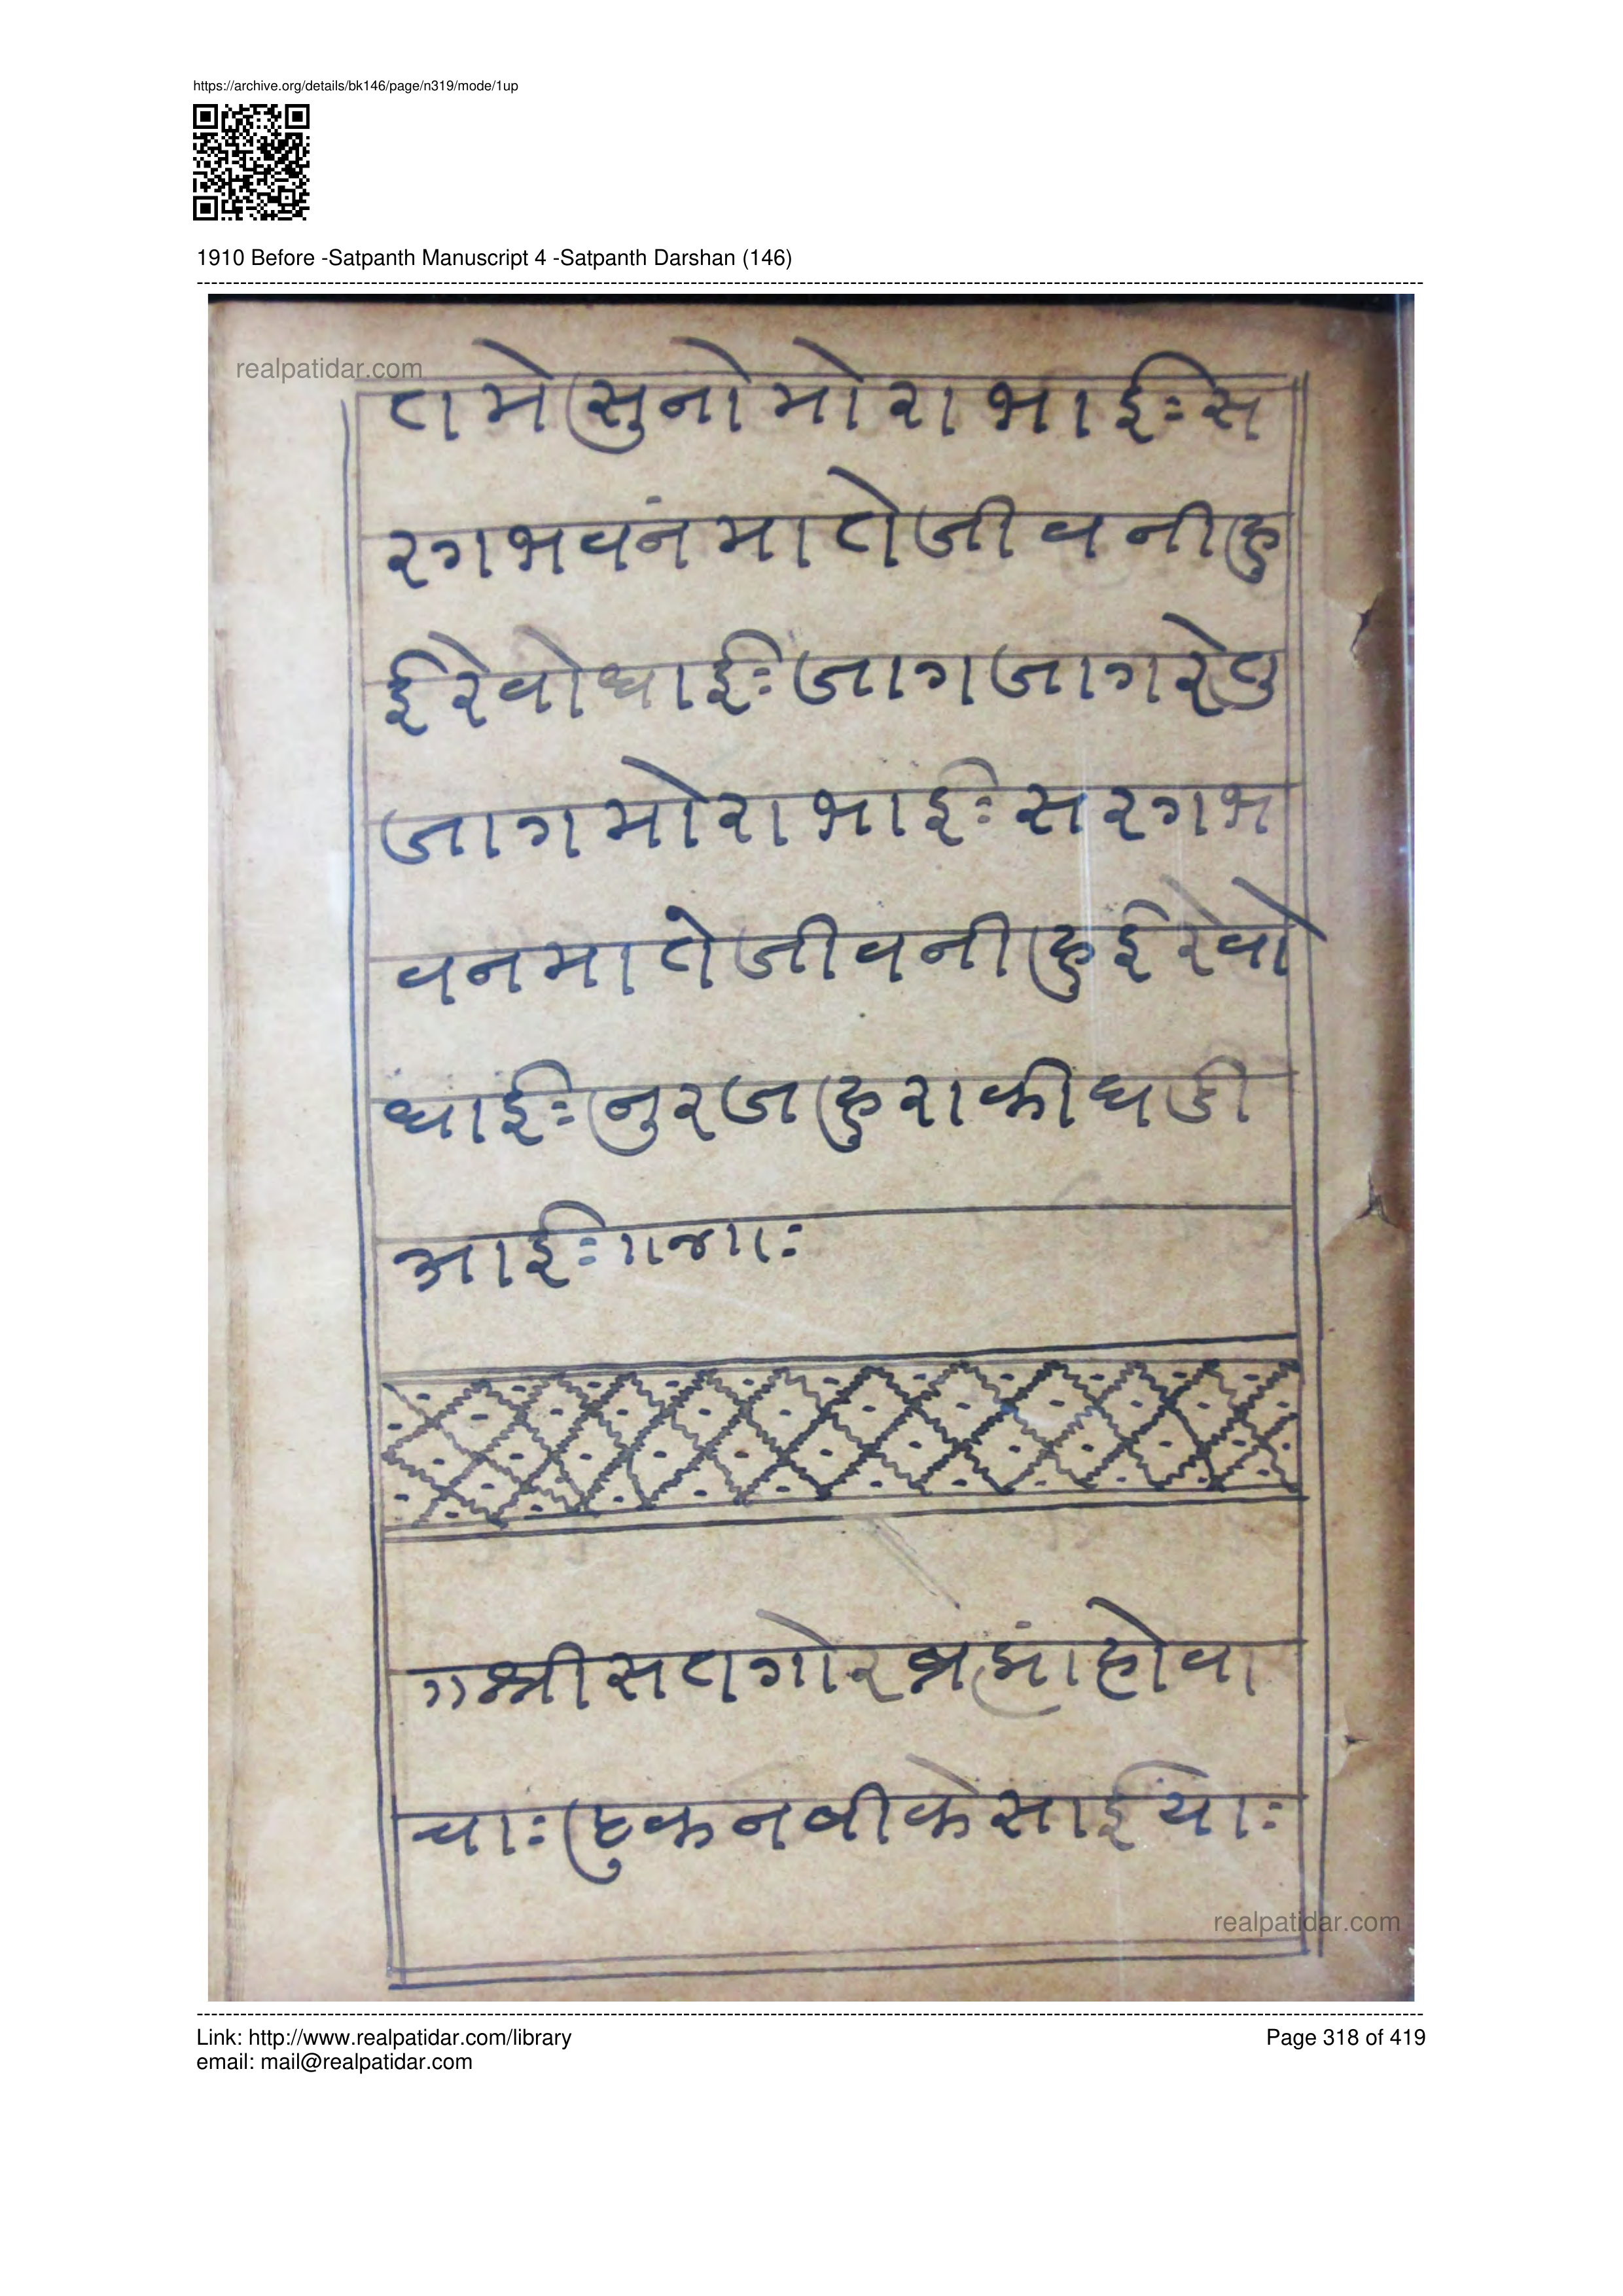 https://archive.org/details/bk146/page/n319/mode/1up
1910 Before -Satpanth Manuscript 4 -Satpanth Darshan (146)
realpatidar.com
तमेसुनोमोराभाईःस
रगभवनंमातेजीवनीहु
ईरेवोधाईःजागजागरेतु
जागमोराभाईःसरगभ
वनमातेजीवनीहुईरेवो
धाईःनुरजहुराकीघडी
आईः॥४॥ः
॥श्रीसतगोरब्रह्मांहोवा
चाःहुकनबीकेसाईयाः
realpatidar.com
Link: http://www.realpatidar.com/library
Page 318 of 419
email: mail@realpatidar.com